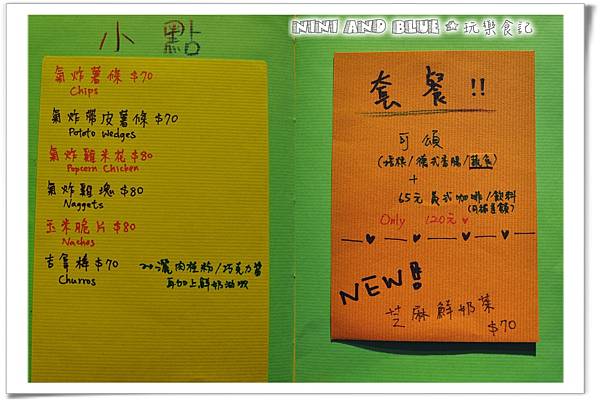 NINI AND BLUE☆玩樂食記
小點
氣炸薯條 $70
Chips
氣炸帶皮薯條 $70
Potato Wedges
氣炸雞米花 $80
Popcorn Chicken
氣炸雞塊 $80
Naggets
玉米脆片 $80
Nachos
吉拿棒 $70
Churros
灑肉桂粉/巧克力醬
再加上鮮奶油唷
套餐!!
可頌
德式香腸/蔬食)
+
65元美式咖啡/飲料
Only 120元 ♥
NEW!
芝麻鮮奶茶
$70